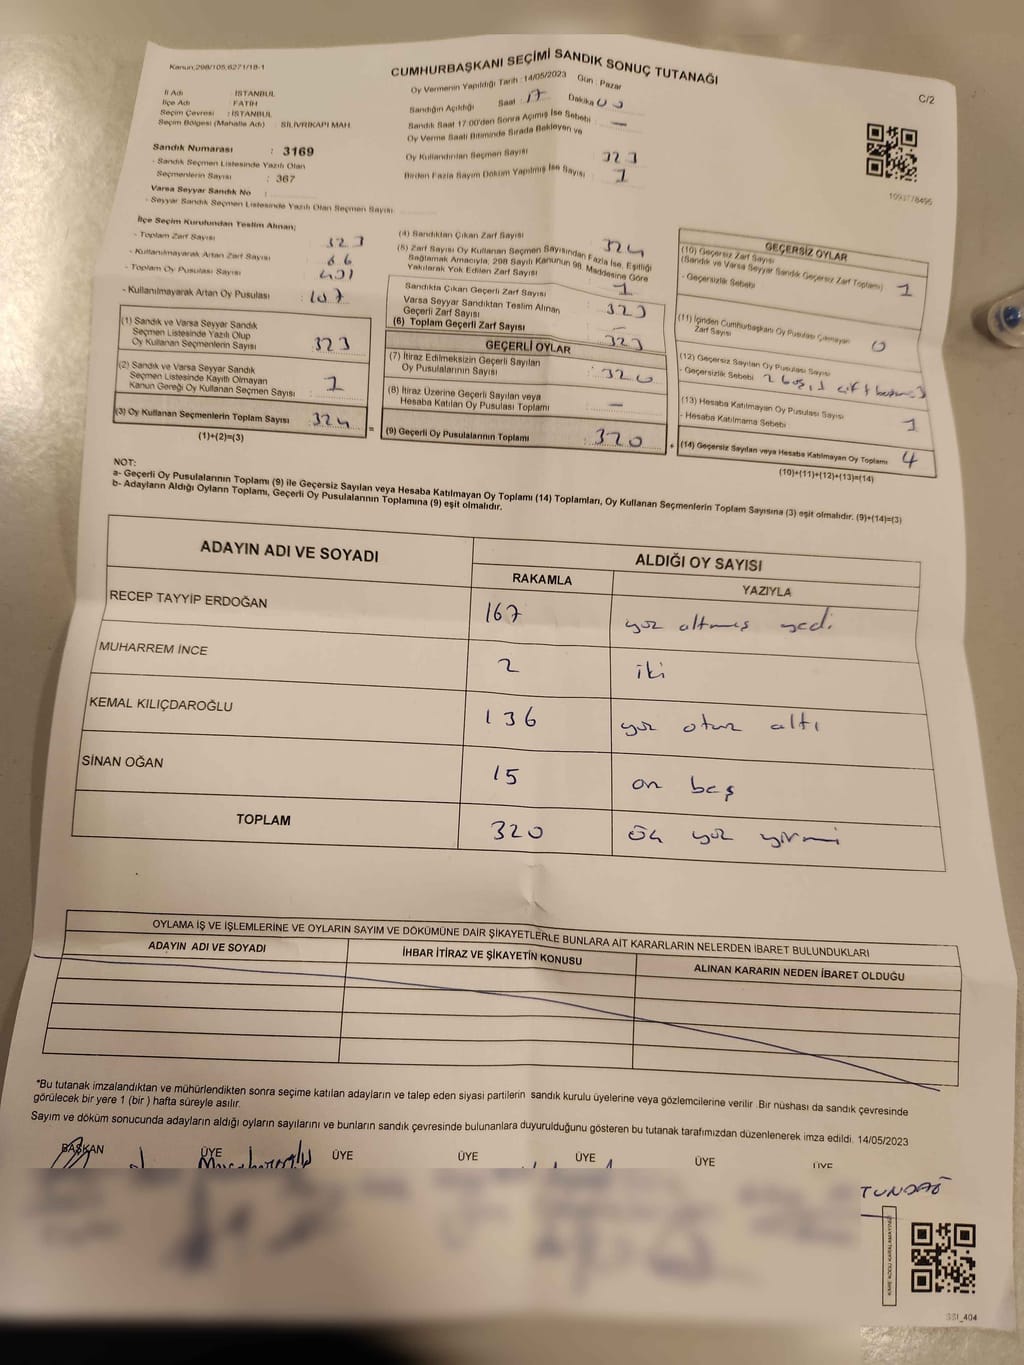 Kanun:298/105,6271/18-1
CUMHURBAŞKANI SEÇİMİ SANDIK SONUÇ TUTANAĞI
C/2
İl Adı : İSTANBUL
İlçe Adı : FATİH
Seçim Çevresi : İSTANBUL
Seçim Bölgesi (Mahalle Adı) : SİLİVRİKAPI MAH.
Oy Vermenin Yapıldığı Tarih : 14/05/2023 Gün : Pazar
Sandığın Açıldığı Saat : 17 Dakika 00
Sandık Saat 17.00'den Sonra Açılmış İse Sebebi : —
Oy Verme Saati Bitiminde Sırada Bekleyen ve
Oy Kullandırılan Seçmen Sayısı 323
Birden Fazla Sayım Döküm Yapılmış İse Sayısı : 1
Sandık Numarası : 3169
- Sandık Seçmen Listesinde Yazılı Olan
Seçmenlerin Sayısı : 367
Varsa Seyyar Sandık No :
- Seyyar Sandık Seçmen Listesinde Yazılı Olan Seçmen Sayısı
İlçe Seçim Kurulundan Teslim Alınan;
- Toplam Zarf Sayısı : 323
- Kullanılmayarak Artan Zarf Sayısı : 66
- Toplam Oy Pusulası Sayısı : 431
- Kullanılmayarak Artan Oy Pusulası : 107
(1) Sandık ve Varsa Seyyar Sandık
Seçmen Listesinde Yazılı Olup
Oy Kullanan Seçmenlerin Sayısı : 323
(2) Sandık ve Varsa Seyyar Sandık
Seçmen Listesinde Kayıtlı Olmayan
Kanun Gereği Oy Kullanan Seçmen Sayısı : 1
(3) Oy Kullanan Seçmenlerin Toplam Sayısı : 324
(1)+(2)=(3)
(4) Sandıktan Çıkan Zarf Sayısı 324
(5) Zarf Sayısı Oy Kullanan Seçmen Sayısından Fazla İse, Eşitliği
Sağlamak Amacıyla, 298 Sayılı Kanunun 98. Maddesine Göre
Yakılarak Yok Edilen Zarf Sayısı : 1
Sandıkta Çıkan Geçerli Zarf Sayısı : 323
Varsa Seyyar Sandıktan Teslim Alınan
Geçerli Zarf Sayısı : —
(6) Toplam Geçerli Zarf Sayısı : 323
GEÇERLİ OYLAR
(7) İtiraz Edilmeksizin Geçerli Sayılan
Oy Pusulalarının Sayısı : 320
(8) İtiraz Üzerine Geçerli Sayılan veya
Hesaba Katılan Oy Pusulası Toplamı : —
= (9) Geçerli Oy Pusulalarının Toplamı : 320
GEÇERSİZ OYLAR
(10) Geçersiz Zarf Sayısı
(Sandık ve Varsa Seyyar Sandık Geçersiz Zarf Toplamı) 1
- Geçersizlik Sebebi :
(11) İçinden Cumhurbaşkanı Oy Pusulası Çıkmayan
Zarf Sayısı : 0
(12) Geçersiz Sayılan Oy Pusulası Sayısı
- Geçersizlik Sebebi : 2 boş, 1 çift
(13) Hesaba Katılmayan Oy Pusulası Sayısı : 1
- Hesaba Katılmama Sebebi :
+ (14) Geçersiz Sayılan veya Hesaba Katılmayan Oy Toplamı 4
(10)+(11)+(12)+(13)=(14)
NOT:
a- Geçerli Oy Pusulalarının Toplamı (9) ile Geçersiz Sayılan veya Hesaba Katılmayan Oy Toplamı (14) Toplamları, Oy Kullanan Seçmenlerin Toplam Sayısına (3) eşit olmalıdır. (9)+(14)=(3)
b- Adayların Aldığı Oyların Toplamı, Geçerli Oy Pusulalarının Toplamına (9) eşit olmalıdır.
ADAYIN ADI VE SOYADI ALDIĞI OY SAYISI
RAKAMLA YAZIYLA
RECEP TAYYİP ERDOĞAN 167 yüz altmış yedi
MUHARREM İNCE 2 iki
KEMAL KILIÇDAROĞLU 136 yüz otuz altı
SİNAN OĞAN 15 on beş
TOPLAM 320 üç yüz yirmi
OYLAMA İŞ VE İŞLEMLERİNE VE OYLARIN SAYIM VE DÖKÜMÜNE DAİR ŞİKAYETLERLE BUNLARA AİT KARARLARIN NELERDEN İBARET BULUNDUKLARI
ADAYIN ADI VE SOYADI İHBAR İTİRAZ VE ŞİKAYETİN KONUSU ALINAN KARARIN NEDEN İBARET OLDUĞU
*Bu tutanak imzalandıktan ve mühürlendikten sonra seçime katılan adayların ve talep eden siyasi partilerin sandık kurulu üyelerine veya gözlemcilerine verilir .Bir nüshası da sandık çevresinde
görülecek bir yere 1 (bir ) hafta süreyle asılır.
Sayım ve döküm sonucunda adayların aldığı oyların sayılarını ve bunların sandık çevresinde bulunanlara duyurulduğunu gösteren bu tutanak tarafımızdan düzenlenerek imza edildi. 14/05/2023
BAŞKAN ÜYE ÜYE ÜYE ÜYE ÜYE ÜYE
SSI_404